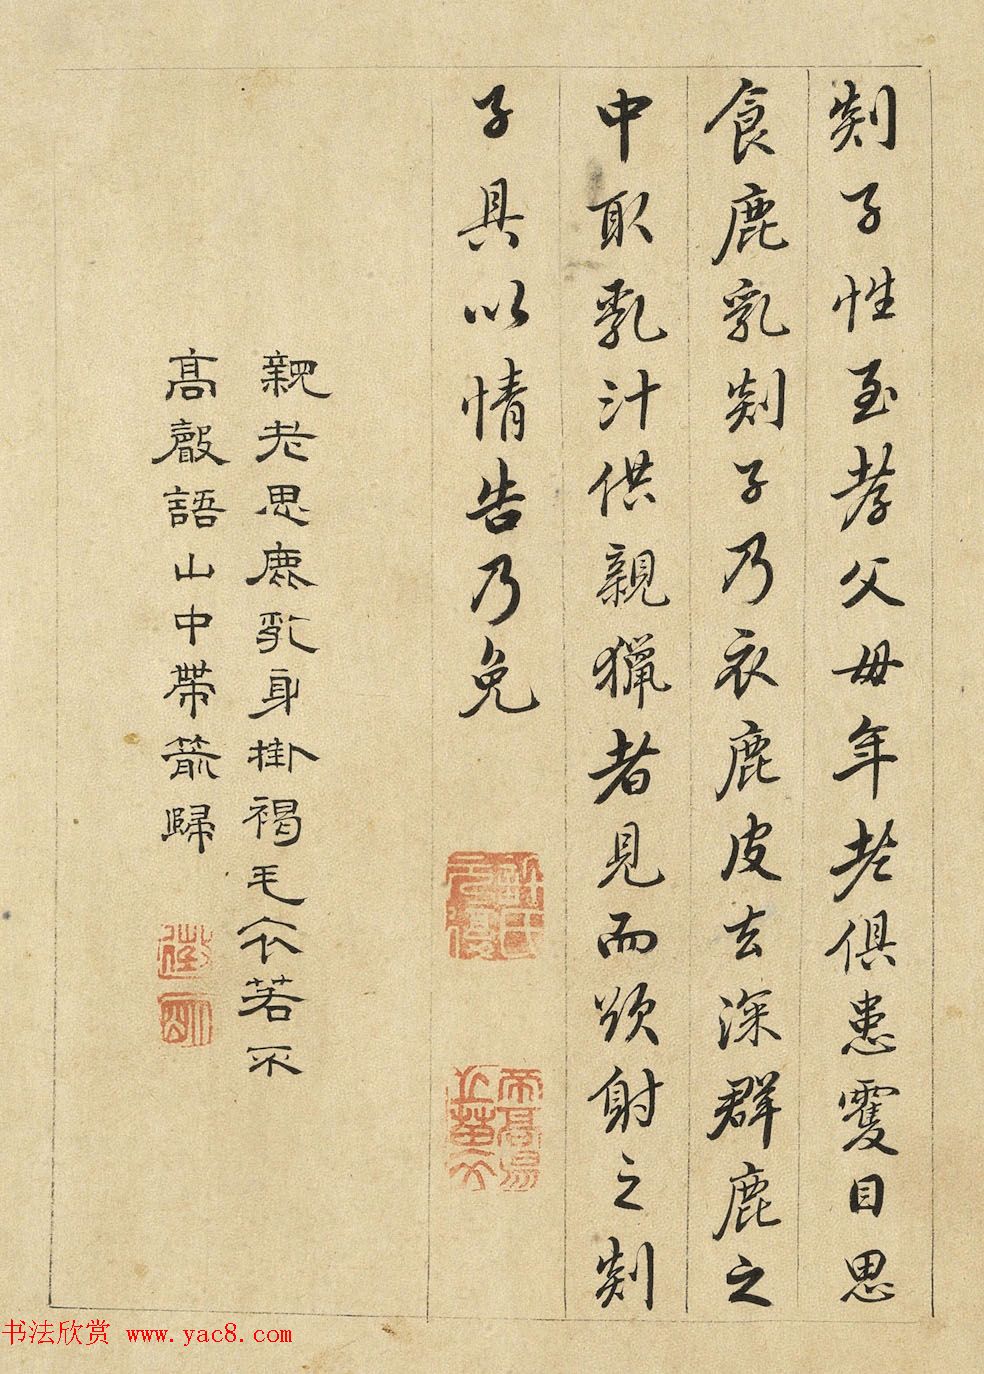 剡子性至孝父母年老俱患雙目思
食鹿乳剡子乃衣鹿皮去深群鹿之
中取乳汁供親獵者見而欲射之剡
子具以情告乃免
帝高陽之苗裔
親老思鹿乳身掛褐毛衣若不
高聲語山中帶箭歸
徵明
书法欣赏 www.yac8.com